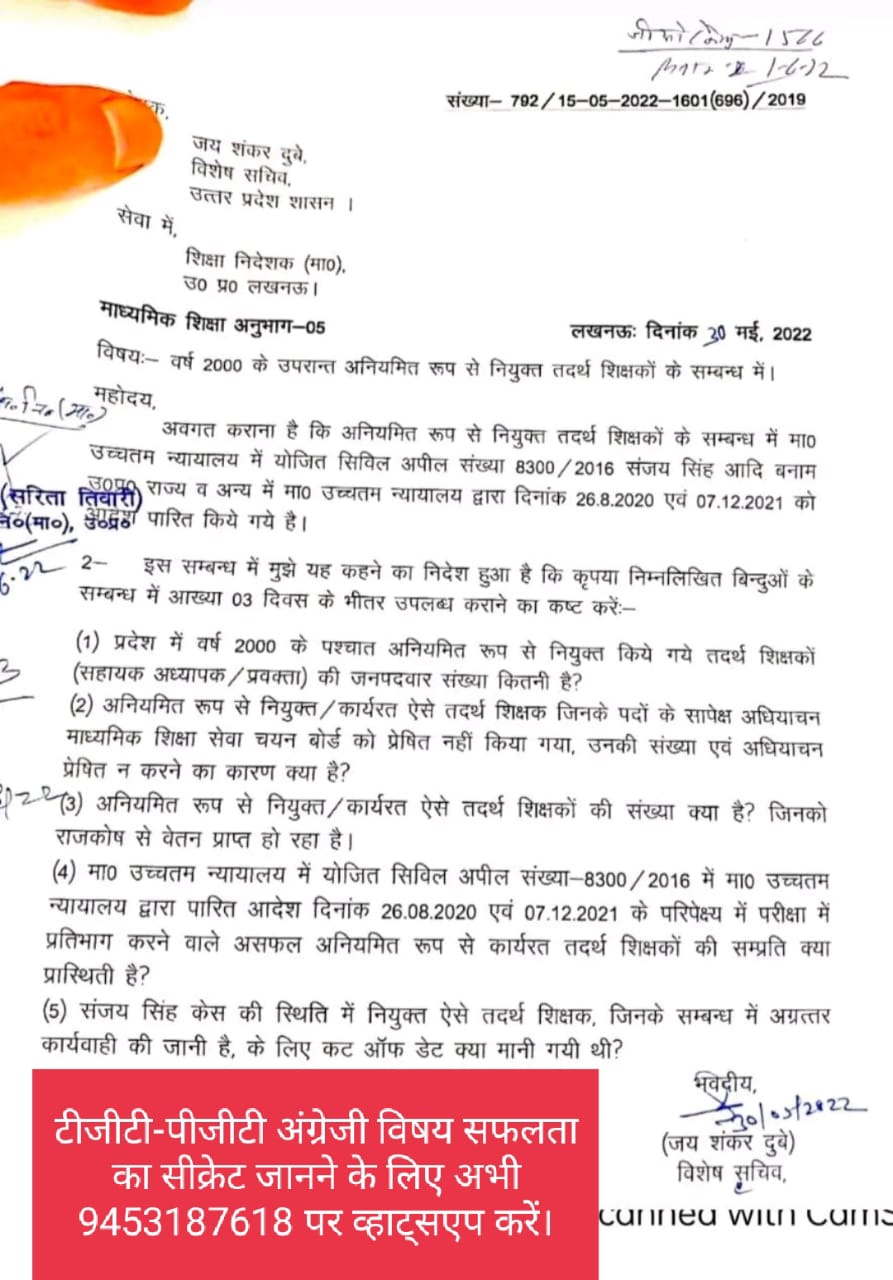 1-6-22
संख्या– 792/15-05-2022-1601(696)/2019
जय शंकर दुबे,
विशेष सचिव,
उत्तर प्रदेश शासन ।
सेवा में,
शिक्षा निदेशक (मा0),
उ0 प्र0 लखनऊ।
माध्यमिक शिक्षा अनुभाग–05
लखनऊः दिनांक 30 मई, 2022
विषयः– वर्ष 2000 के उपरान्त अनियमित रूप से नियुक्त तदर्थ शिक्षकों के सम्बन्ध में।
महोदय,
अवगत कराना है कि अनियमित रूप से नियुक्त तदर्थ शिक्षकों के सम्बन्ध में मा0
उच्चतम न्यायालय में योजित सिविल अपील संख्या 8300/2016 संजय सिंह आदि बनाम
उ0प्र0 राज्य व अन्य में मा0 उच्चतम न्यायालय द्वारा दिनांक 26.8.2020 एवं 07.12.2021 को
आदेश पारित किये गये है।
(सरिता तिवारी)
(मा०), उ०प्र०
2– इस सम्बन्ध में मुझे यह कहने का निदेश हुआ है कि कृपया निम्नलिखित बिन्दुओं के
सम्बन्ध में आख्या 03 दिवस के भीतर उपलब्ध कराने का कष्ट करेंः–
(1) प्रदेश में वर्ष 2000 के पश्चात अनियमित रूप से नियुक्त किये गये तदर्थ शिक्षकों
(सहायक अध्यापक/प्रवक्ता) की जनपदवार संख्या कितनी है?
(2) अनियमित रूप से नियुक्त/कार्यरत ऐसे तदर्थ शिक्षक जिनके पदों के सापेक्ष अधियाचन
माध्यमिक शिक्षा सेवा चयन बोर्ड को प्रेषित नहीं किया गया, उनकी संख्या एवं अधियाचन
प्रेषित न करने का कारण क्या है?
(3) अनियमित रूप से नियुक्त/कार्यरत ऐसे तदर्थ शिक्षकों की संख्या क्या है? जिनको
राजकोष से वेतन प्राप्त हो रहा है।
(4) मा0 उच्चतम न्यायालय में योजित सिविल अपील संख्या–8300/2016 में मा0 उच्चतम
न्यायालय द्वारा पारित आदेश दिनांक 26.08.2020 एवं 07.12.2021 के परिपेक्ष्य में परीक्षा में
प्रतिभाग करने वाले असफल अनियमित रूप से कार्यरत तदर्थ शिक्षकों की सम्प्रति क्या
प्रास्थिती है?
(5) संजय सिंह केस की स्थिति में नियुक्त ऐसे तदर्थ शिक्षक, जिनके सम्बन्ध में अग्रत्तर
कार्यवाही की जानी है, के लिए कट ऑफ डेट क्या मानी गयी थी?
भवदीय,
30/05/2022
(जय शंकर दुबे)
विशेष सचिव,
टीजीटी-पीजीटी अंग्रेजी विषय सफलता
का सीक्रेट जानने के लिए अभी
9453187618 पर व्हाट्सएप करें।
canned with Cams